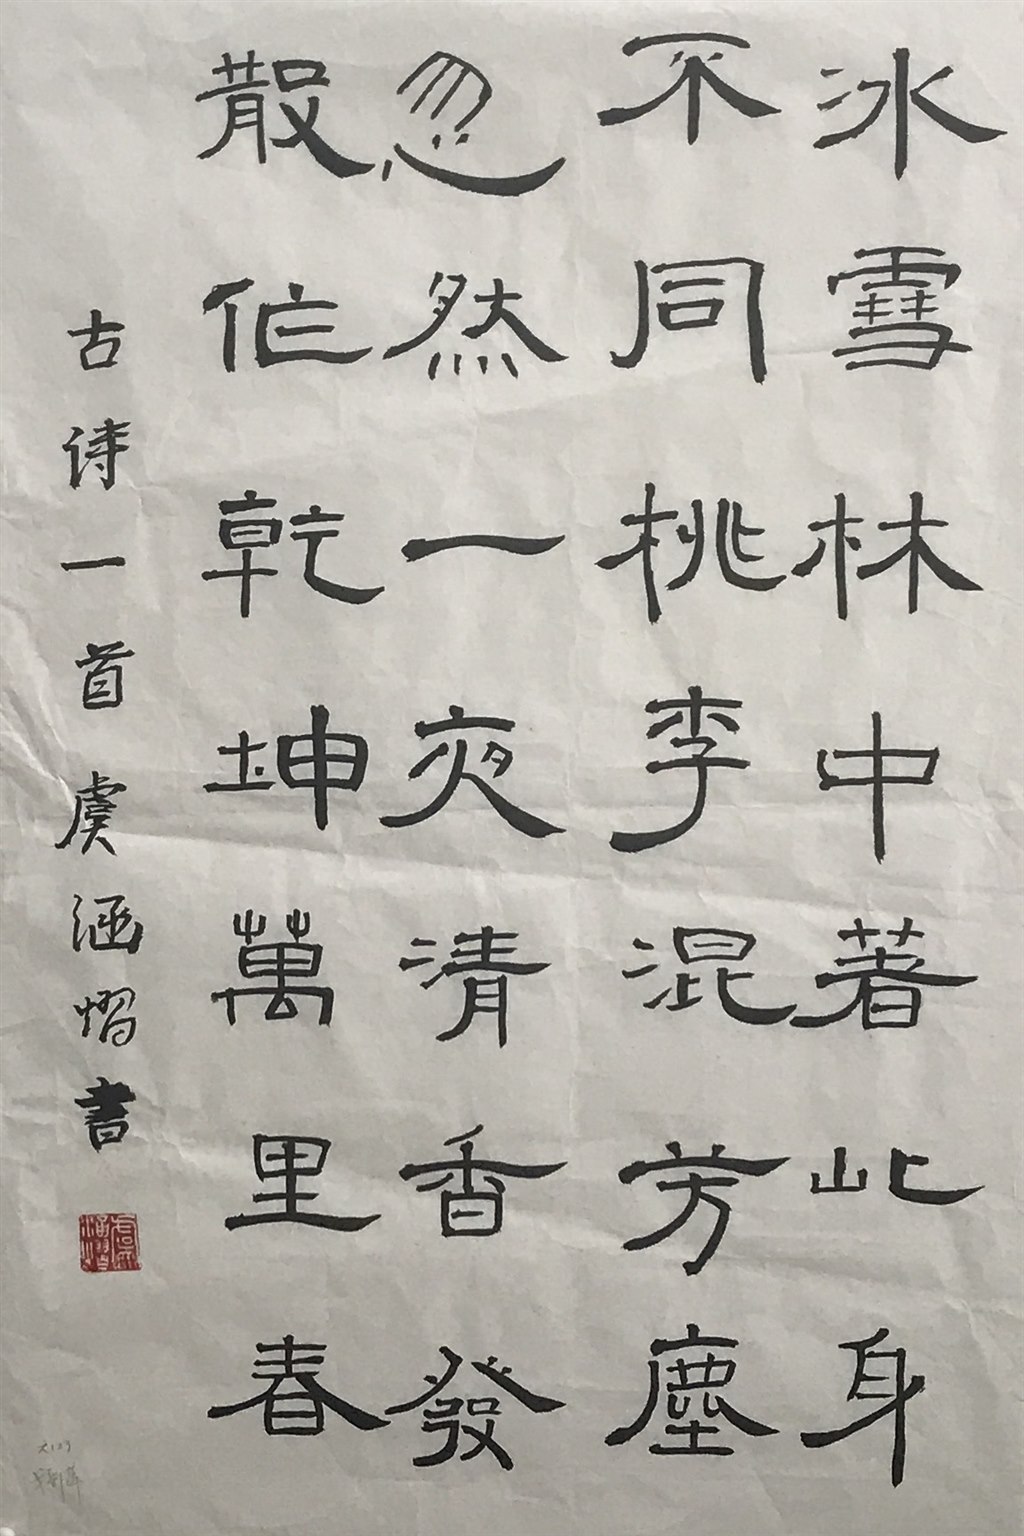 冰雪林中著此身
不同桃李混芳塵
忽然一夜清香發
散作乾坤萬里春
古诗一首虞涵熠書